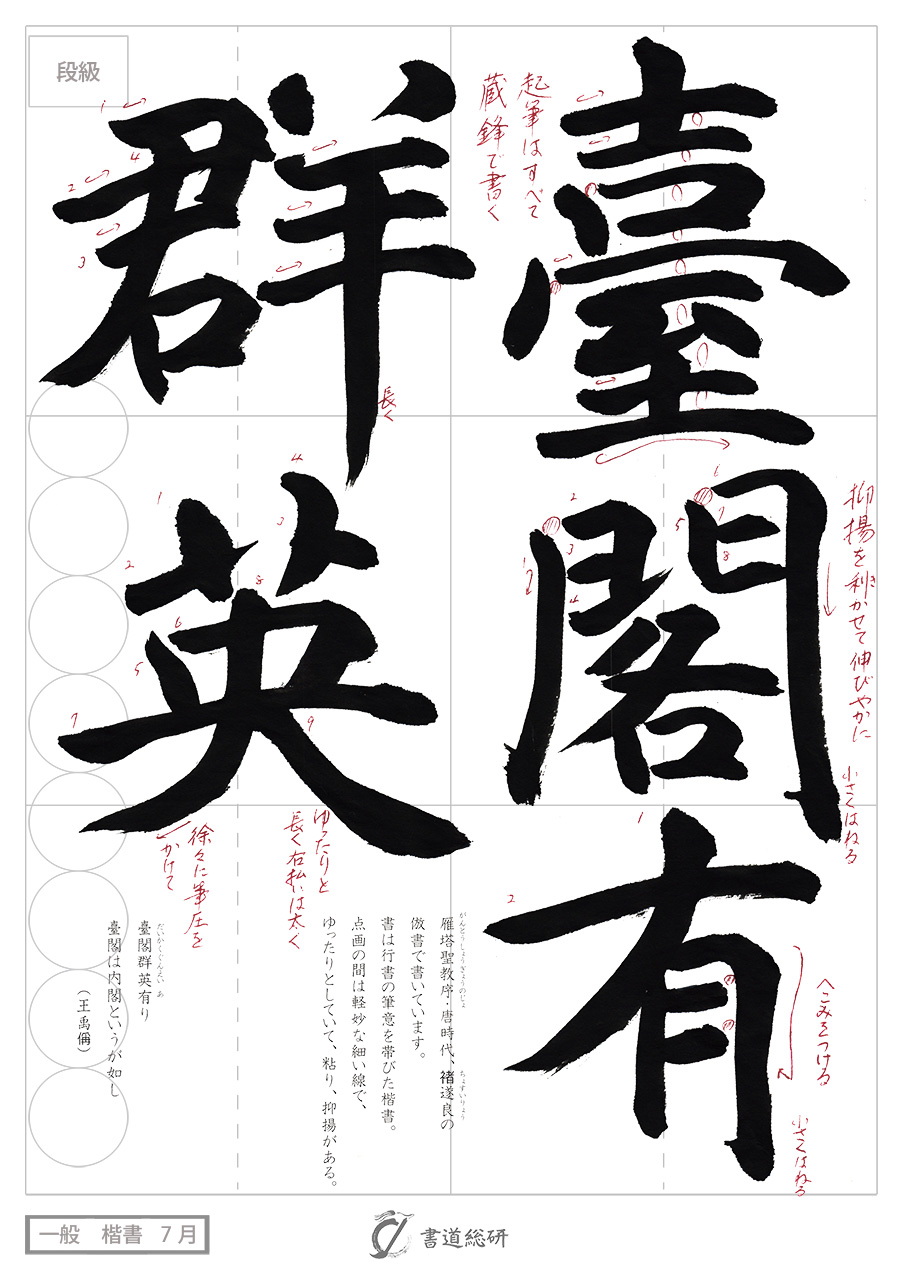 段級
臺閣有
群英
起筆はすべて
蔵鋒で書く
長く
抑揚を利かせて伸びやかに
き
小さくはねる
ゆったりと
長く右払いは太く
徐々に筆圧を
かけて
へこみをつける
小さくはねる
がんとうしょうぎょうのじょ
ちょすいりょう
雁塔聖教序・唐時代、褚遂良の
倣書で書いています。
書は行書の筆意を帯びた楷書。
点画の間は軽妙な細い線で、
ゆったりとしていて、粘り、抑揚がある。
だいかくぐんえい あ
臺閣群英有り
臺閣は内閣というが如し
（王禹偁）
一般 楷書 7月
書道総研